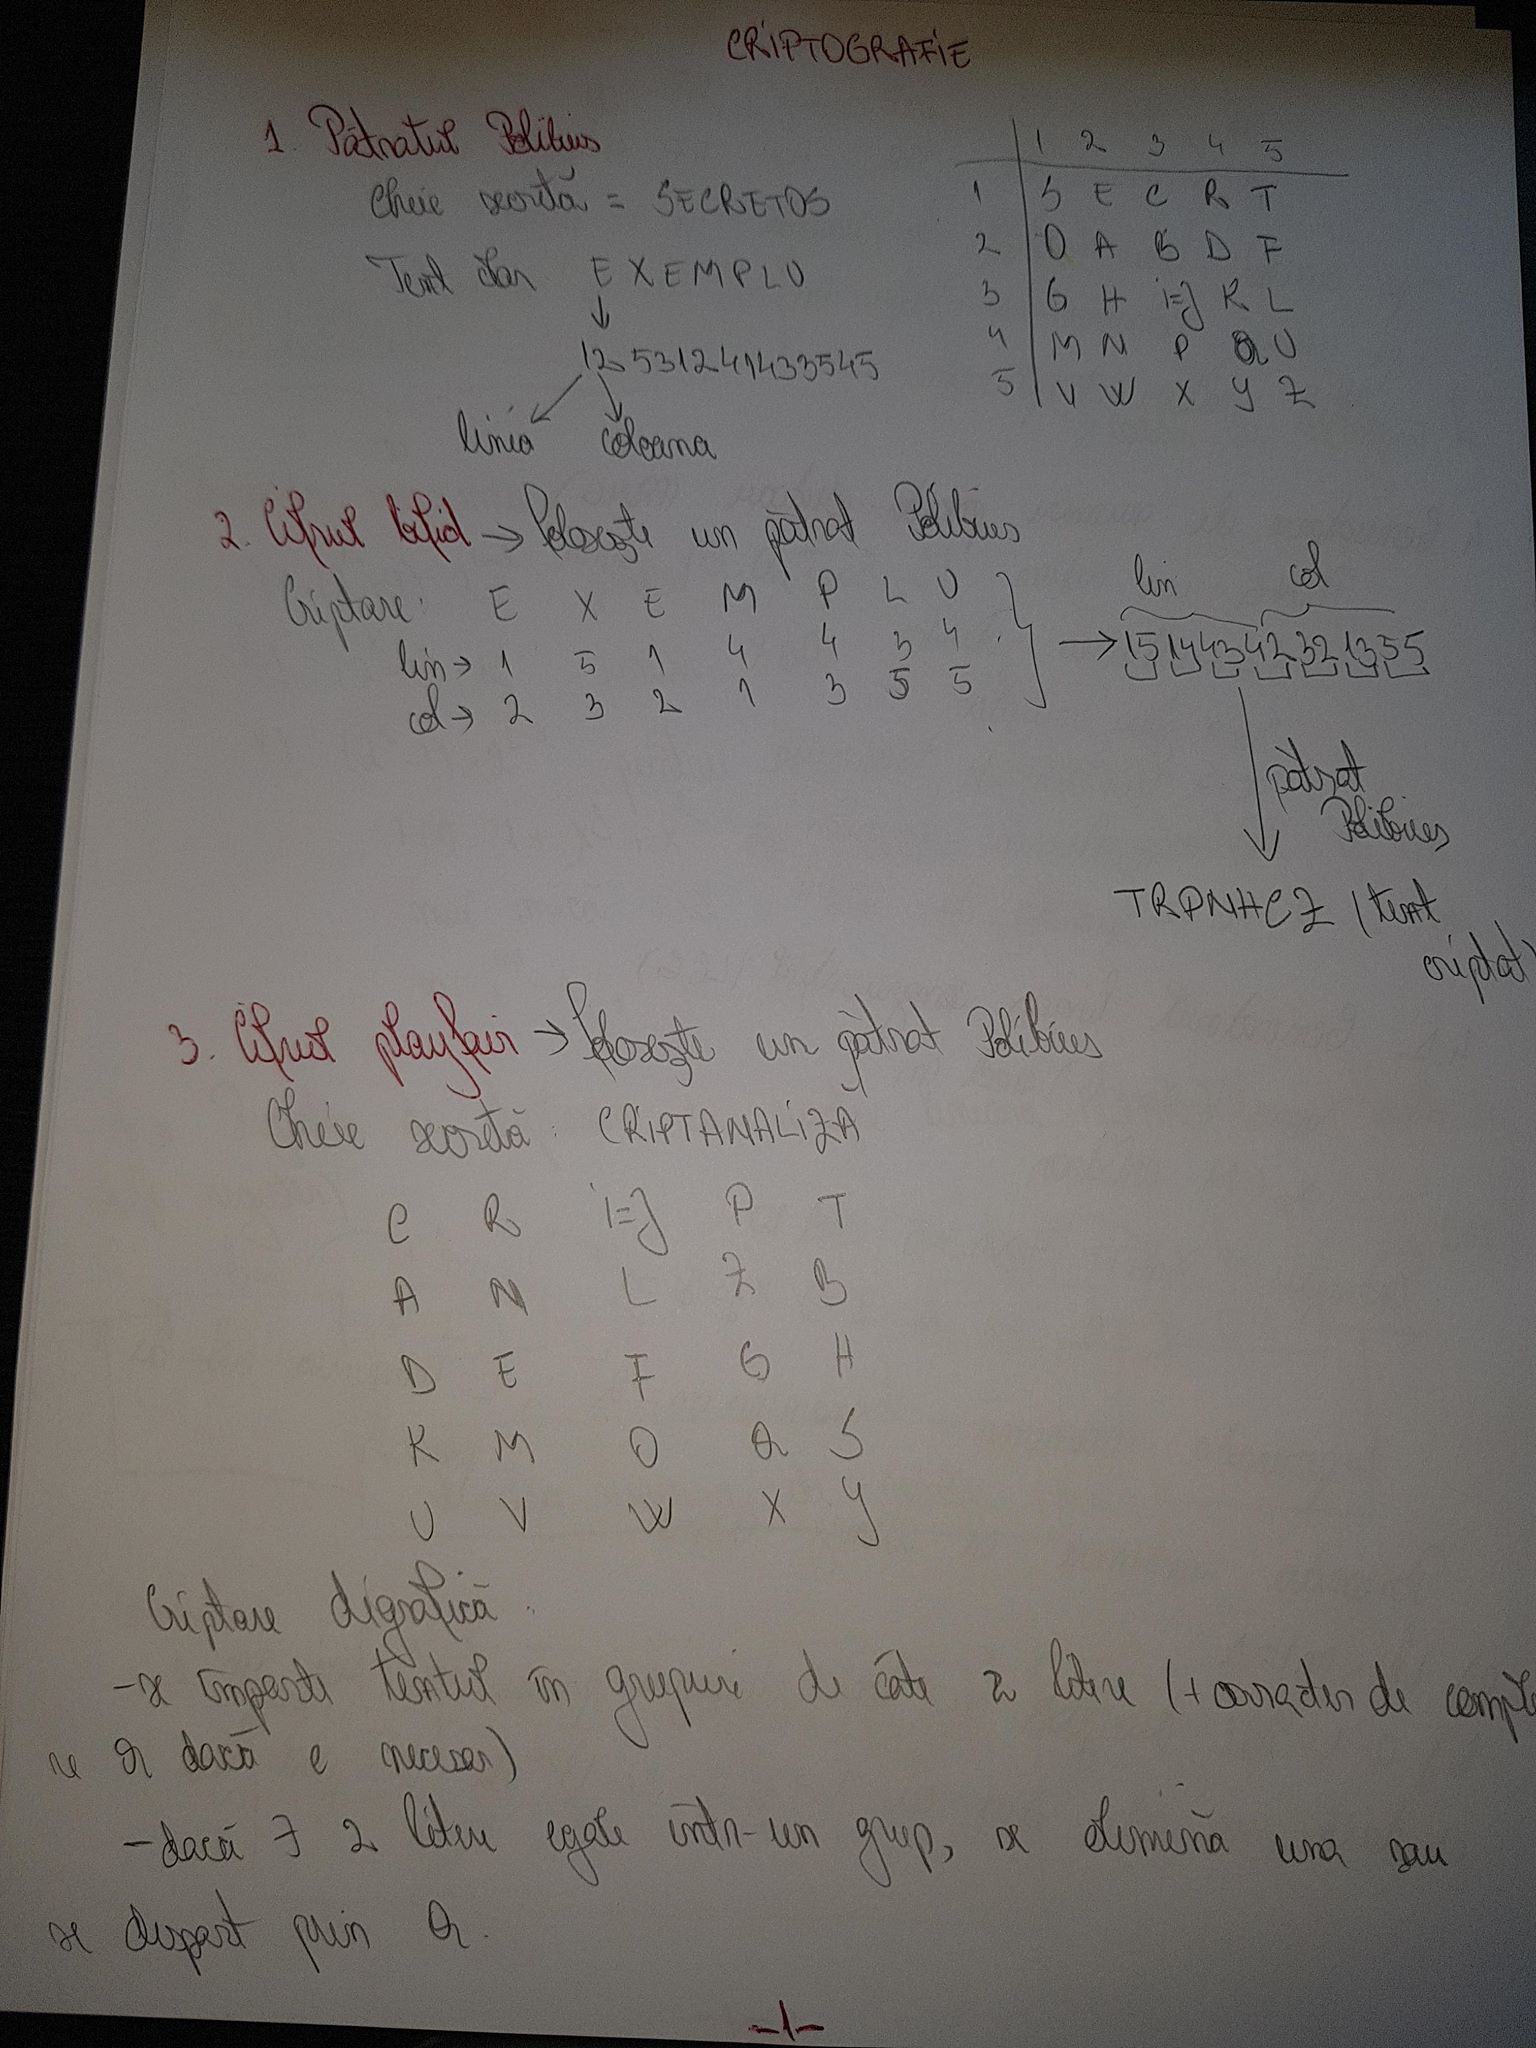 CRIPTOGRAFIE
1. Pătratul Polibius
Cheie secretă = SECRETOS
Text clar EXEMPLU
12 531241433545
linia coloana
1 2 3 4 5
1 S E C R T
2 O A B D F
3 G H i=j K L
4 M N P Q U
5 V W X Y Z
2. Cifrul bifid → folosește un pătrat Polibius
Criptare: E X E M P L U
lin → 1 5 1 4 4 3 4
col → 2 3 2 1 3 5 5
lin col
→ 15144342321355
pătrat
Polibius
TRPNHCZ (text
criptat)
3. Cifrul playfair → folosește un pătrat Polibius
Cheie secretă: CRIPTANALIZA
C R i=j P T
A N L Z B
D E F G H
K M O Q S
U V W X Y
Criptare digrafică:
- se împarte textul în grupuri de câte 2 litere (+ caracter de comple
re Q dacă e necesar)
- dacă ∃ 2 litere egale într-un grup, se elimină una sau
se despart prin Q.
-1-